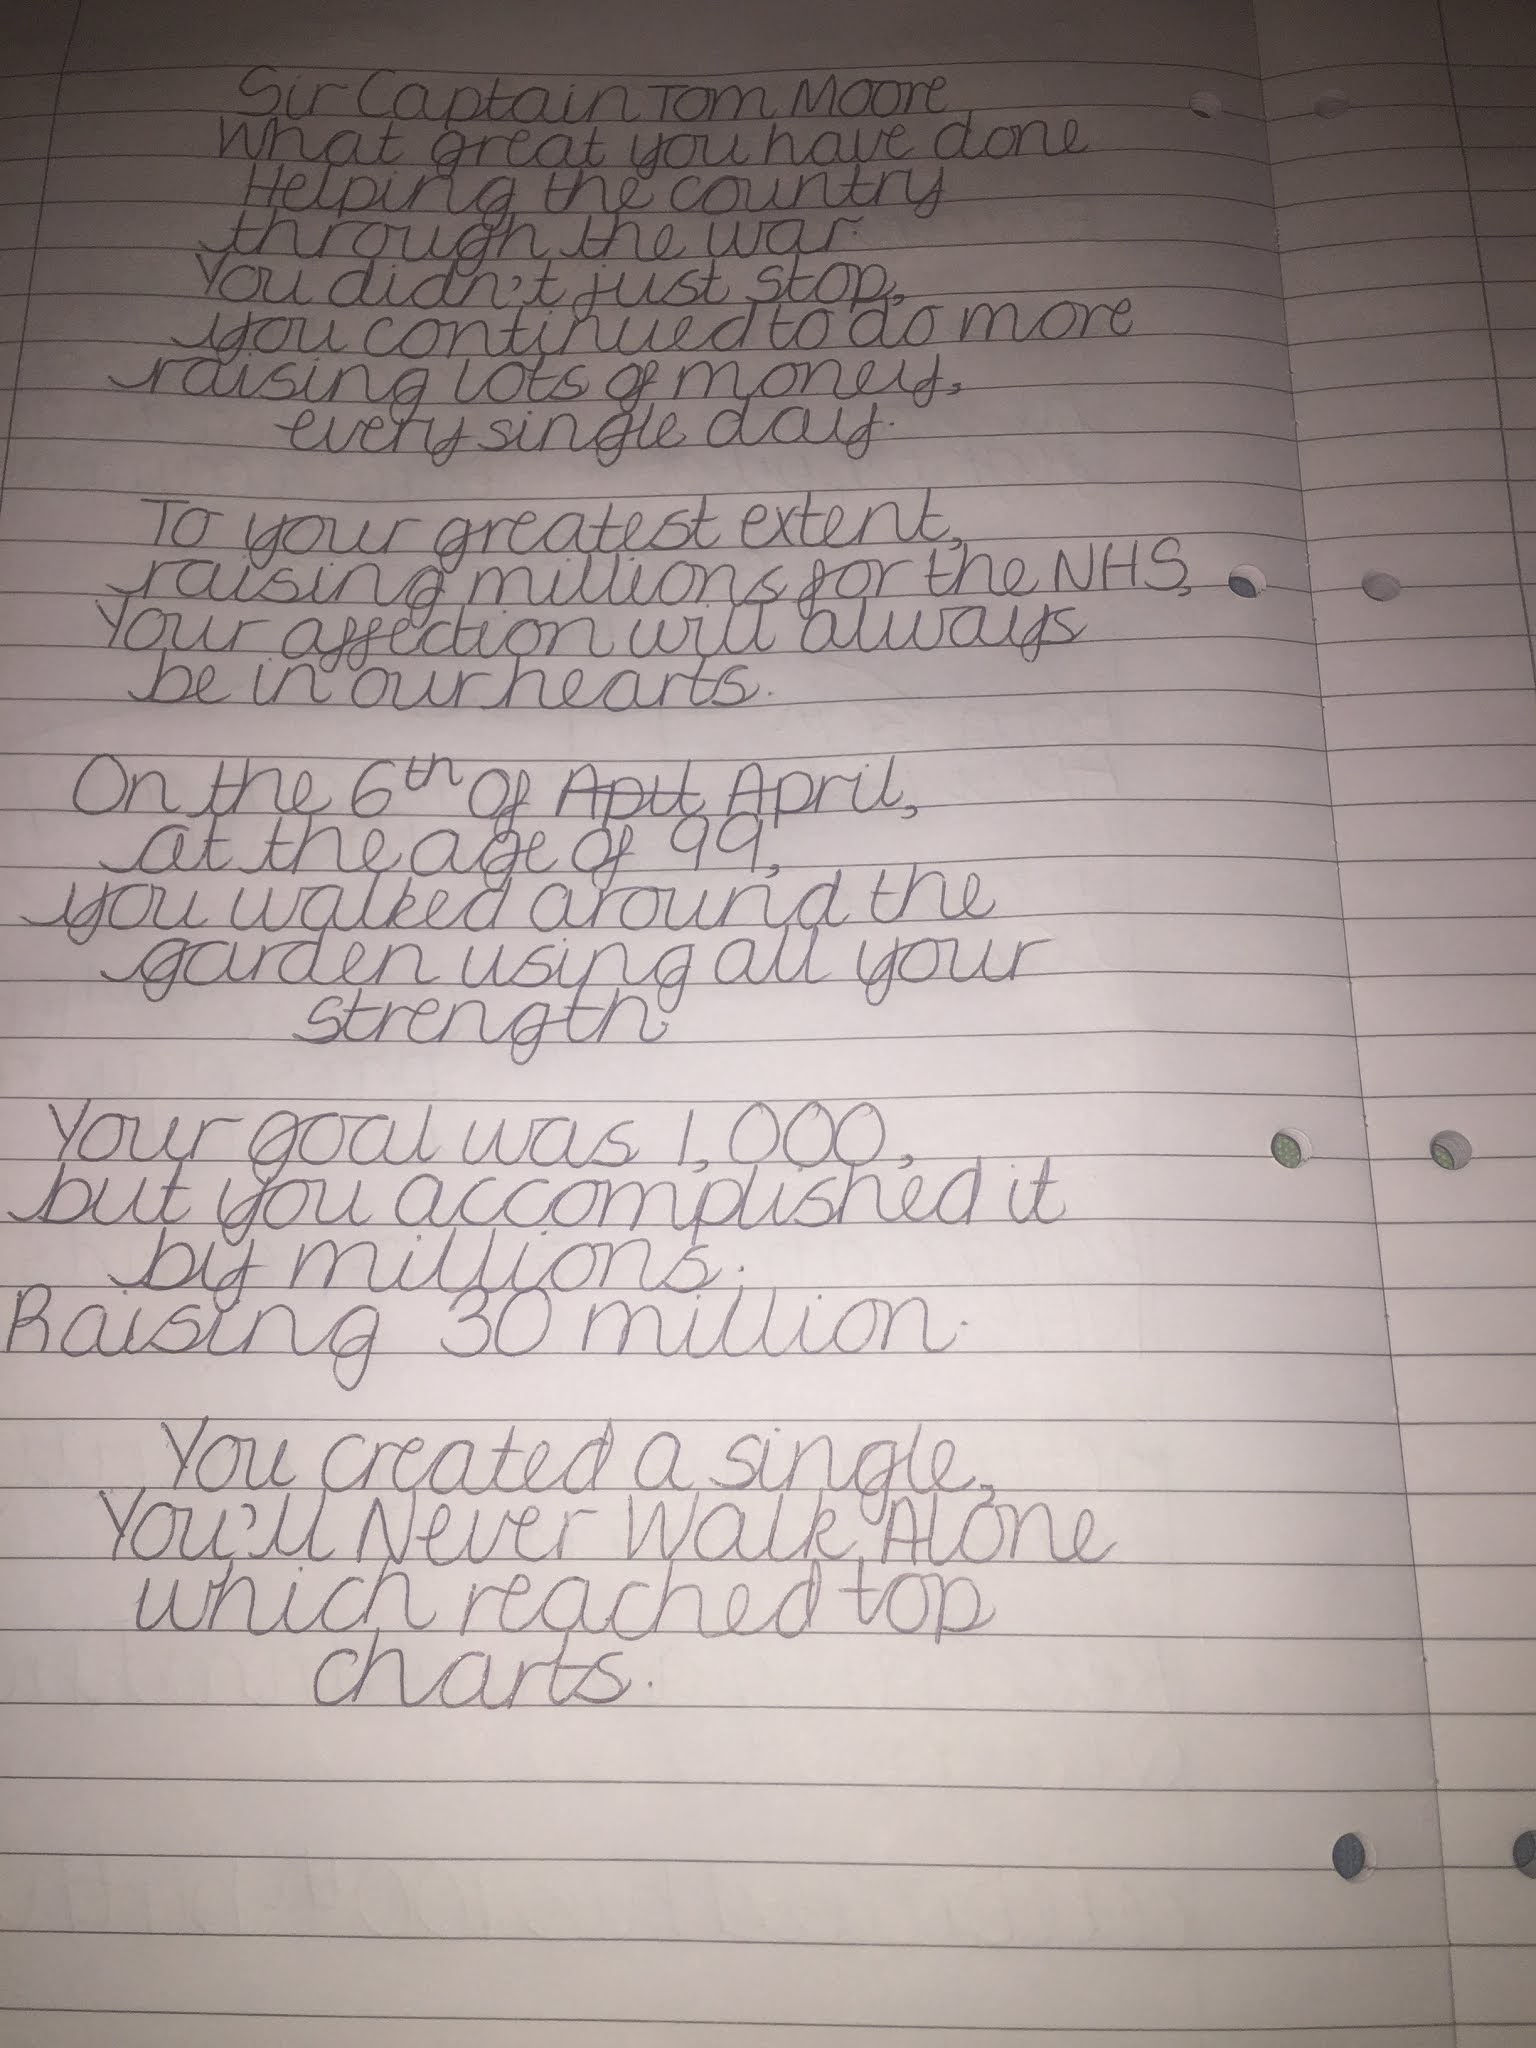 Sir Captain Tom Moore
What great you have done
Helping the country
through the war.
You didn't just stop,
you continued to do more
raising lots of money,
every single day.
To your greatest extent,
raising millions for the NHS,
Your affection will always
be in our hearts.
On the 6th of Apil April,
at the age of 99,
you walked around the
garden using all your
strength.
Your goal was 1,000,
but you accomplished it
by millions.
Raising 30 million.
You created a single,
You'll Never Walk Alone
which reached top
charts.